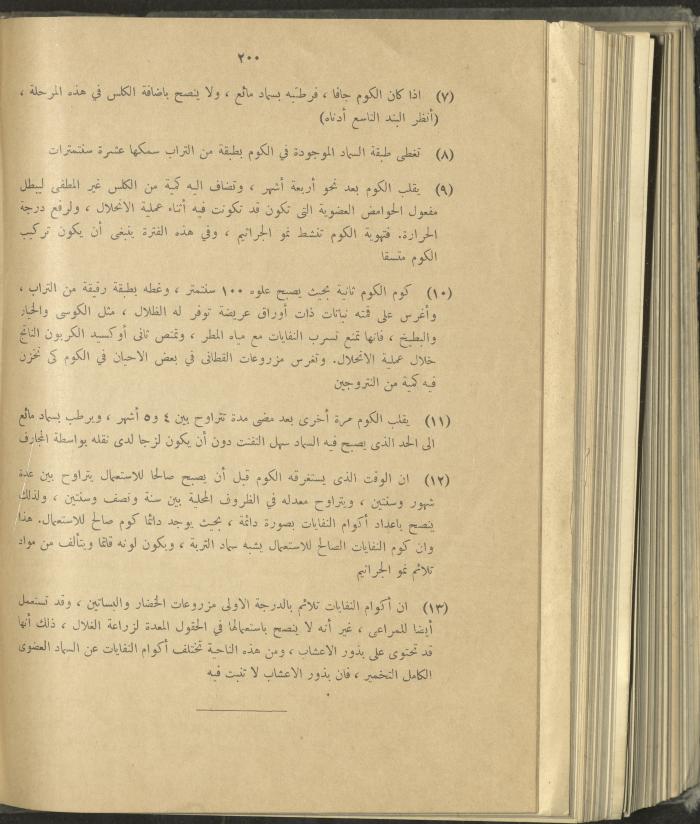 ٢٠٠
(٧) اذا كان الكوم جافا ، فرطبه بسماد مائع ، ولا ينصح باضافة الكلس في هذه المرحلة ،
(أنظر البند التاسع أدناه)
(٨) تغطى طبقة السماد الموجودة في الكوم بطبقة من التراب سمكها عشرة سنتمترات
(٩) يقلب الكوم بعد نحو أربعة أشهر ، وتضاف اليه كمية من الكلس غير المطفى ليبطل
مفعول الحوامض العضوية التى تكون قد تكونت فيه أثناء عملية الانحلال ، ولرفع درجة
الحرارة. فتهوية الكوم تنشط نمو الجراثيم ، وفي هذه الفترة ينبغى أن يكون تركيب
الكوم متسقا
(١٠) كوم الكوم ثانية بحيث يصبح علوه ١٠٠ سنتمتر ، وغطه بطبقة رقيقة من التراب ،
وأغرس على قمته نباتات ذات أوراق عريضة توفر له الظلال ، مثل الكوسى والخيار
والبطيخ ، فانها تمنع تسرب النفايات مع مياه المطر ، وتمتص ثانى أوكسيد الكربون الناتج
خلال عملية الانحلال. وتغرس مزروعات القطانى في بعض الاحيان في الكوم كى تخزن
فيه كمية من النتروجين
(١١) يقلب الكوم مرة أخرى بعد مضى مدة تتراوح بين ٤ و٥ أشهر ، ويرطب بسماد مائع
الى الحد الذى يصبح فيه السماد سهل التفتت دون أن يكون لزجا لدى نقله بواسطة المجارف
(١٢) ان الوقت الذى يستغرقه الكوم قبل أن يصبح صالحا للاستعمال يتراوح بين عدة
شهور وسنتين ، ويتراوح معدله في الظروف المحلية بين سنة ونصف وسنتين ، ولذلك
ينصح باعداد أكوام النفايات بصورة دائمة ، بحيث يوجد دائما كوم صالح للاستعمال. هذا
وان كوم النفايات الصالح للاستعمال يشبه سماد التربة ، ويكون لونه قاتما ويتألف من مواد
تلائم نمو الجراثيم
(١٣) ان أكوام النفايات تلائم بالدرجة الاولى مزروعات الخضار والبساتين ، وقد تستعمل
أيضا للمراعى ، غير أنه لا ينصح باستعمالها في الحقول المعدة لزراعة الغلال ، ذلك أنها
قد تحتوى على بذور الاعشاب ، ومن هذه الناحية تختلف أكوام النفايات عن السماد العضوى
الكامل التخمير ، فان بذور الاعشاب لا تنبت فيه